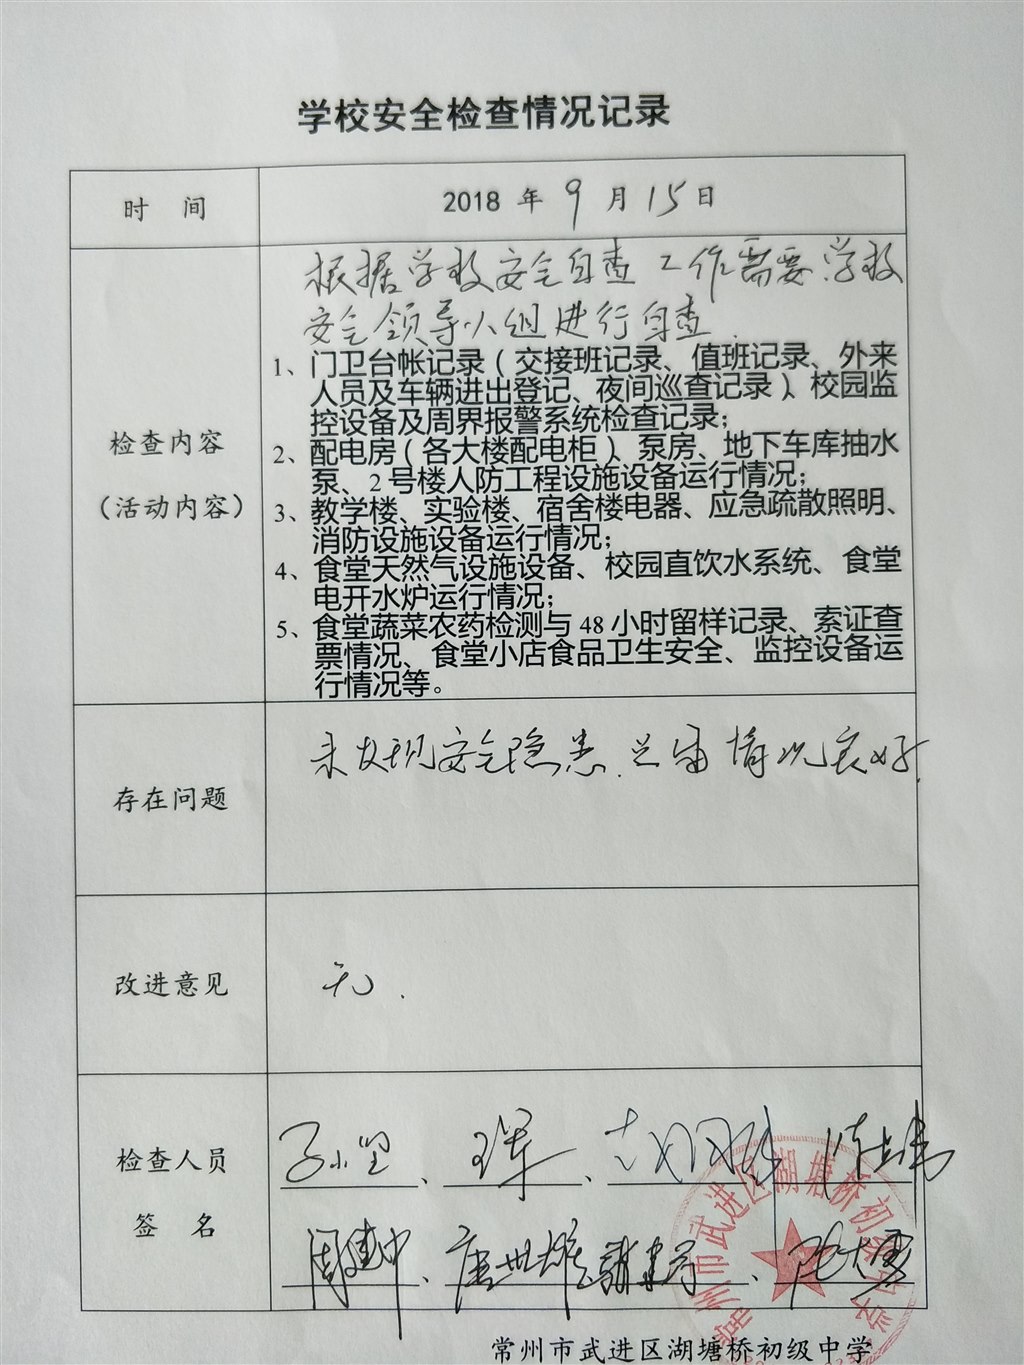 学校安全检查情况记录
时 间
2018 年 9 月 15 日
根据学校安全自查工作需要,学校
安全领导小组进行自查.
检查内容
(活动内容)
1、门卫台帐记录(交接班记录、值班记录、外来
人员及车辆进出登记、夜间巡查记录)、校园监
控设备及周界报警系统检查记录;
2、配电房(各大楼配电柜)、泵房、地下车库抽水
泵、2号楼人防工程设施设备运行情况;
3、教学楼、实验楼、宿舍楼电器、应急疏散照明、
消防设施设备运行情况;
4、食堂天然气设施设备、校园直饮水系统、食堂
电开水炉运行情况;
5、食堂蔬菜农药检测与48小时留样记录、索证查
票情况、食堂小店食品卫生安全、监控设备运
行情况等。
存在问题
未发现安全隐患. 情况良好.
改进意见
无.
检查人员
签 名
周建中、唐世雄
常州市武进区湖塘桥初级中学
常州市武进区湖塘桥初级中学